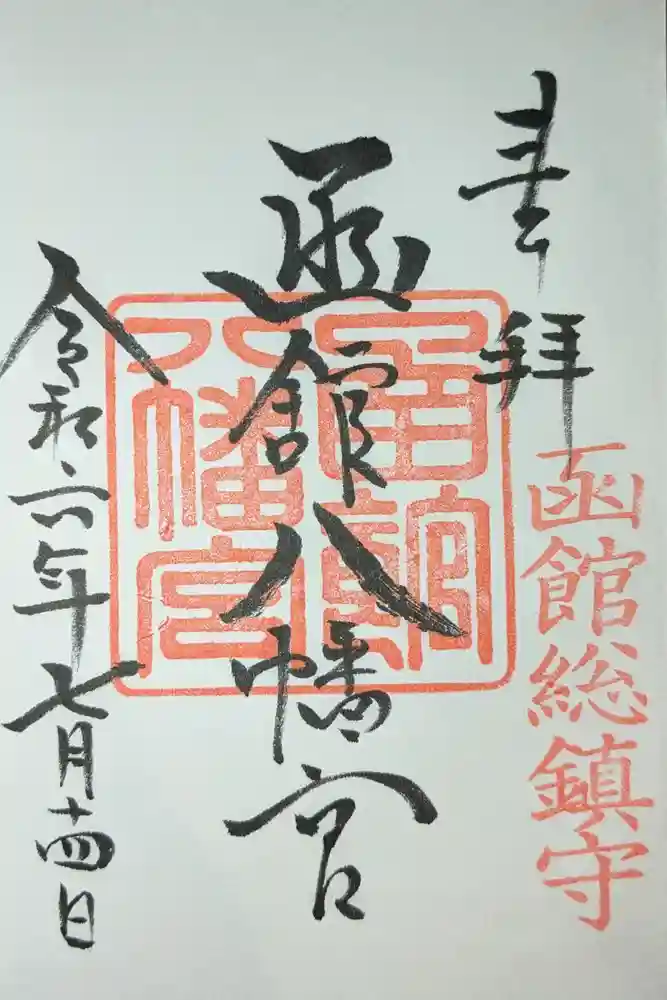 奉拝
函館総鎮守
函館八幡宮
函館八幡宮
令和六年七月十四日